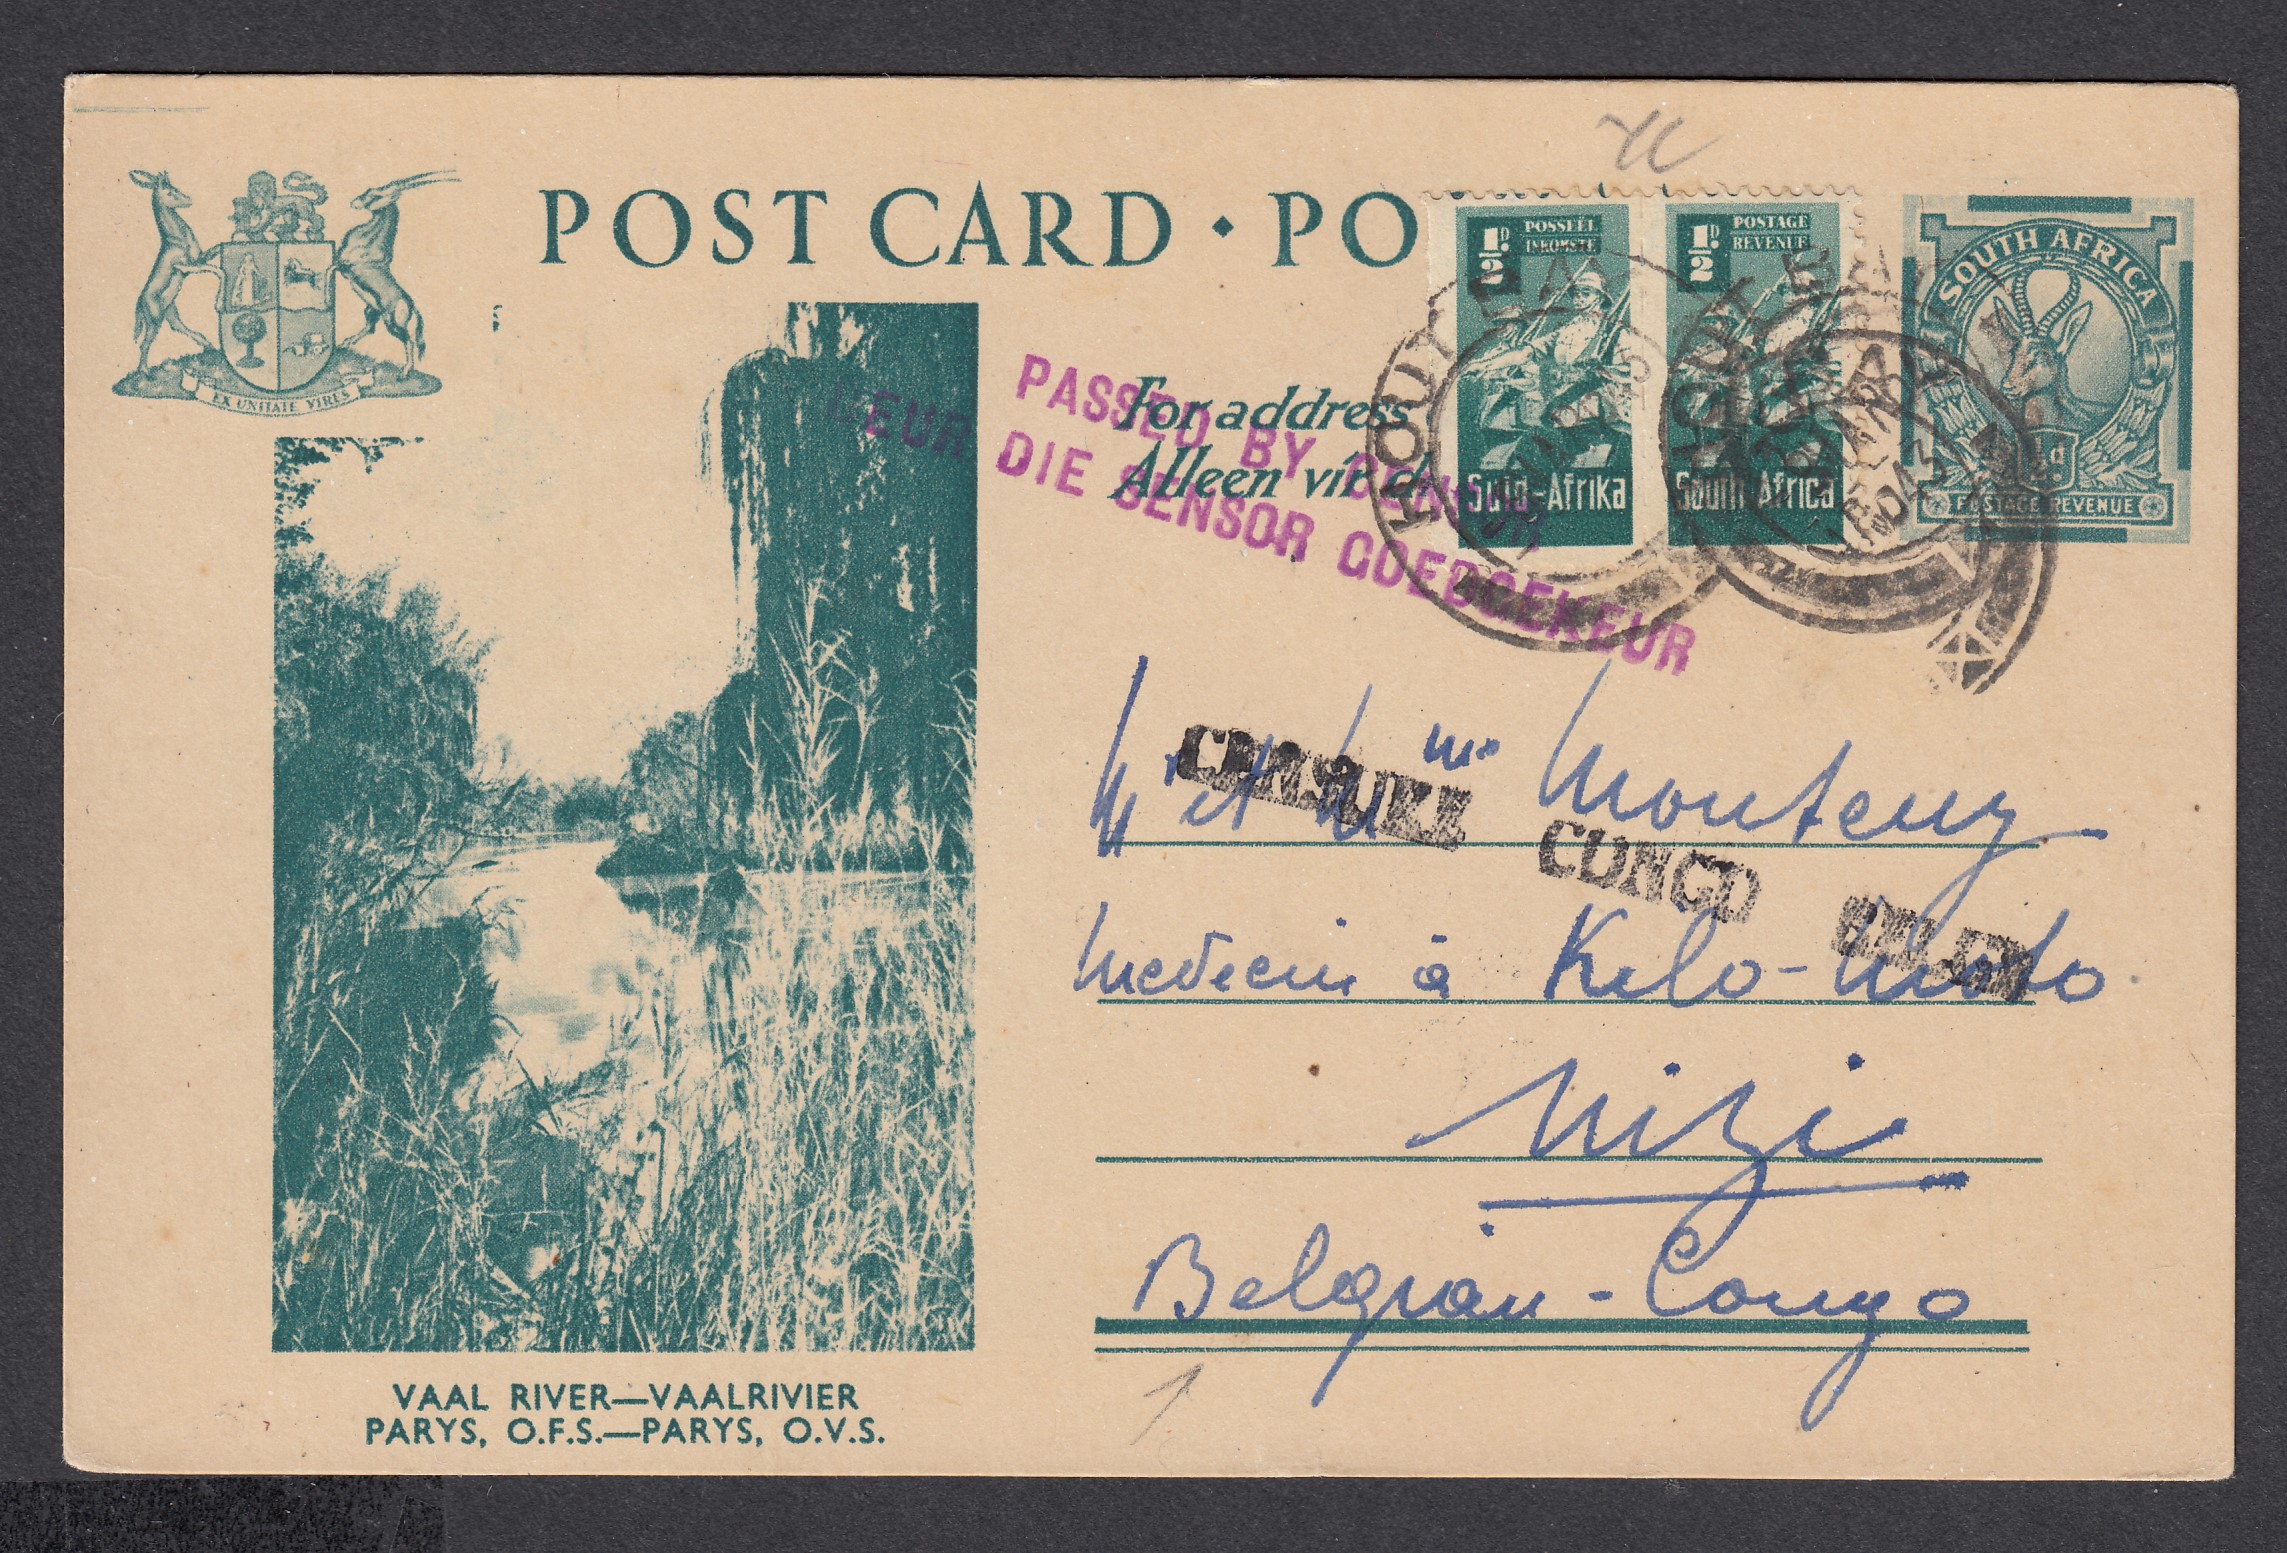 POST CARD · PO
EX UNITATE VIRES
½D POSSEEL INKOMSTE
Suid-Afrika
½D POSTAGE REVENUE
South Africa
SOUTH AFRICA
POSTAGE REVENUE
HOUT BAAI
HOUT BAY
For address
Alleen vir d
PASSED BY CENSOR
DEUR DIE SENSOR GOEDGEKEUR
CENSURE CONGO BELGE
Mr et Mme Monteny
Medecin à Kilo-Moto
Nizi
Belgian-Congo
VAAL RIVER—VAALRIVIER
PARYS, O.F.S.—PARYS, O.V.S.